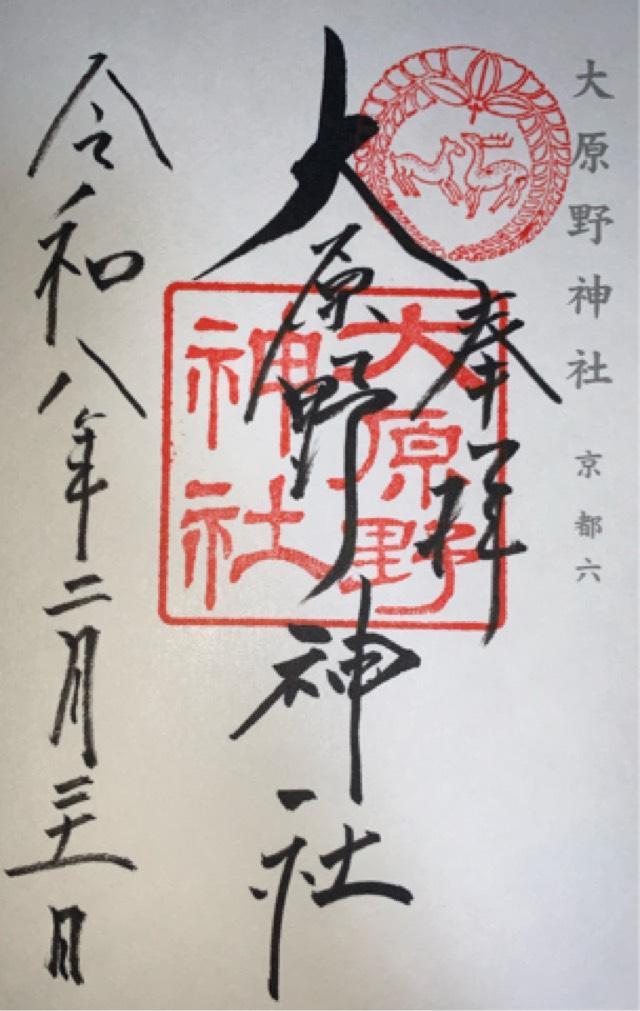 大原野神社 京都六
奉拝
大原野神社
大原野
神社
令和八年二月
日